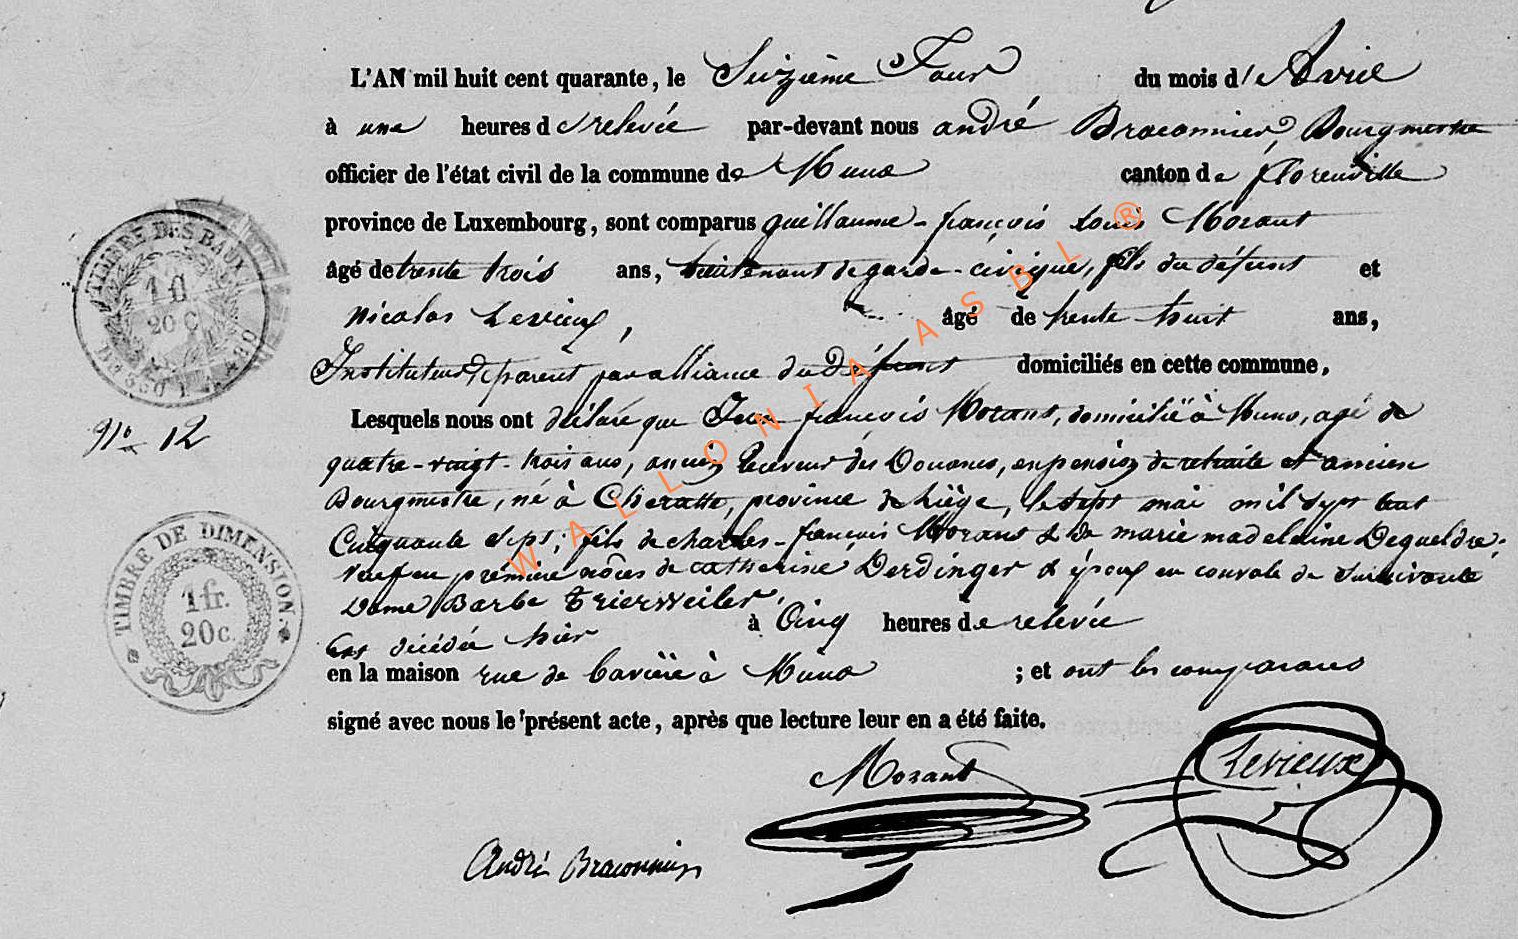 L'AN mil huit cent quarante, le Seizième Jour du mois d'Avril
à une heures de relevée par-devant nous andré Braconnier, Bourgmestre
officier de l'état civil de la commune de Muno canton de florenville
province de Luxembourg, sont comparus guillaume-françois Louis Morant
âgé de trente trois ans, lieutenant de garde-civique, fils du défunt et
Nicolas Levieux, âgé de trente huit ans,
Instituteur, parent par alliance du Défunt domiciliés en cette commune,
Lesquels nous ont déclaré que Jean françois Morant, domicilié à Muno, agé de
quatre-vingt-trois ans, ancien Receveur des Douanes, en pension de retraite et ancien
Bourgmestre, né à Cheratte, province de Liège, le sept mai mil sept cent
Cinquante sept; fils de charles-françois Morant & de marie madelaine Degueldre;
veuf en première nôces de catherine Derdinger & époux en de survivante
Dame Barbe Trierweiler,
Est décédé hier à Cinq heures de relevée
en la maison rue de à Muno ; et ont les comparans
signé avec nous le présent acte, après que lecture leur en a été faite.
Morant
Levieux
André Braconnier
N° 12
TIMBRE DES BAUX
20 C
TIMBRE DE DIMENSION.
1 fr.
20 c.
WALLONIA ASBL ®